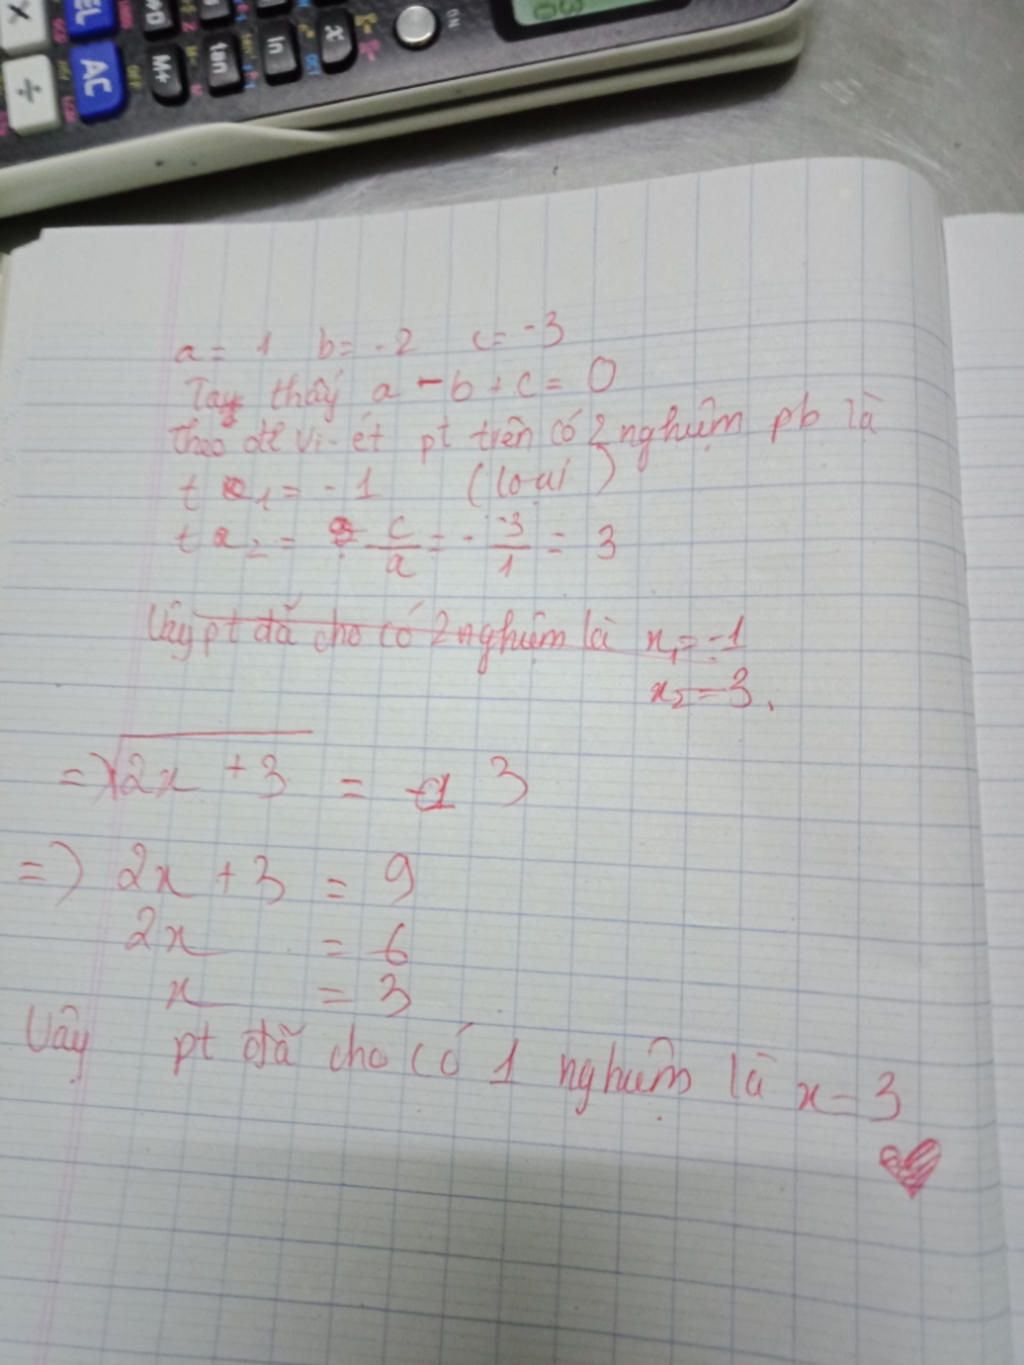 ÷
AC
M+
tan
ln
ON
a = 1 b = -2 c = -3
Tay thấy a - b + c = 0
theo đl vi-ét pt trên có 2 nghiệm pb là
t 1 = - 1 (loại)
t 2 = - c/a = - -3/1 = 3
Vậy pt đã cho có 2 nghiệm là x₁ = -1
x₂ = 3.
=> √2x + 3 = 3
=> 2x + 3 = 9
2x = 6
x = 3
Vậy pt đã cho có 1 nghiệm là x = 3